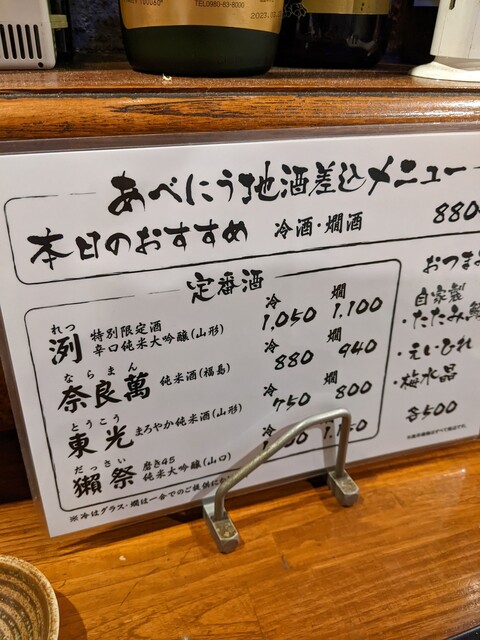 TEL0880-83-8000
あべにう地酒差込メニュー
本日のおすすめ 冷酒・燗酒 880
定番酒
れつ
洌 特別限定酒 辛口純米大吟醸(山形) 冷 1,050 燗 1,100
ならまん
奈良萬 純米酒(福島) 冷 880 燗 940
とうこう
東光 まろやか純米酒(山形) 冷 750 燗 800
だっさい
獺祭 磨き45 純米大吟醸(山口) 冷
※冷はグラス・燗は一合でのご提供に
おつま
自家製
・たたみ
・えいひれ
・梅水晶
各500